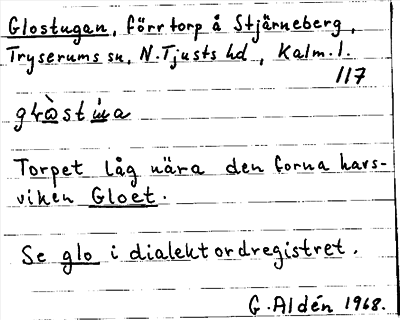 Glostugan, förr torp å Stjärneberg,
Tryserums sn, N. Tjusts hd, Kalm. l.
117
Torpet låg nära den forna havs-
viken Gloet.
Se glo i dialektordregistret.
G. Aldén 1968.